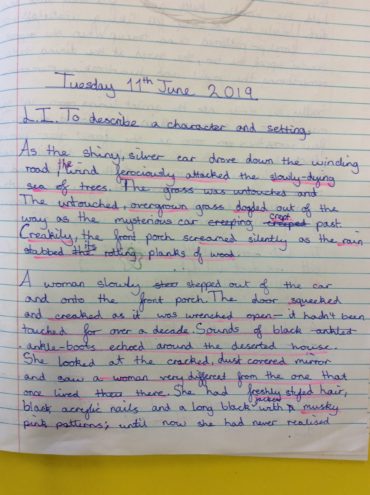 Tuesday 11th June 2019
L.I. To describe a character and setting.
As the shiny, silver car drove down the winding
road, the wind ferociously attacked the slowly-dying
sea of trees. The grass was untouched and
The untouched, overgrown grass dogled out of the
way as the mysterious car creeping creeped crept past.
Creakily, the front porch screamed silently as the rain
stabbed the its rotting planks of wood.
A woman slowly steer stepped out of the car
and onto the front porch. The door squecked
and creaked as it was wrenched open - it hadn't been
touched for over a decade. Sounds of black ankled
ankle-boots echoed around the deserted house.
She looked at the cracked, dust covered mirror
and saw a woman very differed from the one that
once lived there there. She had freshly styled hair,
black, acrylic nails and a long black jacket with a musky
pink patterns; until now she had never realised